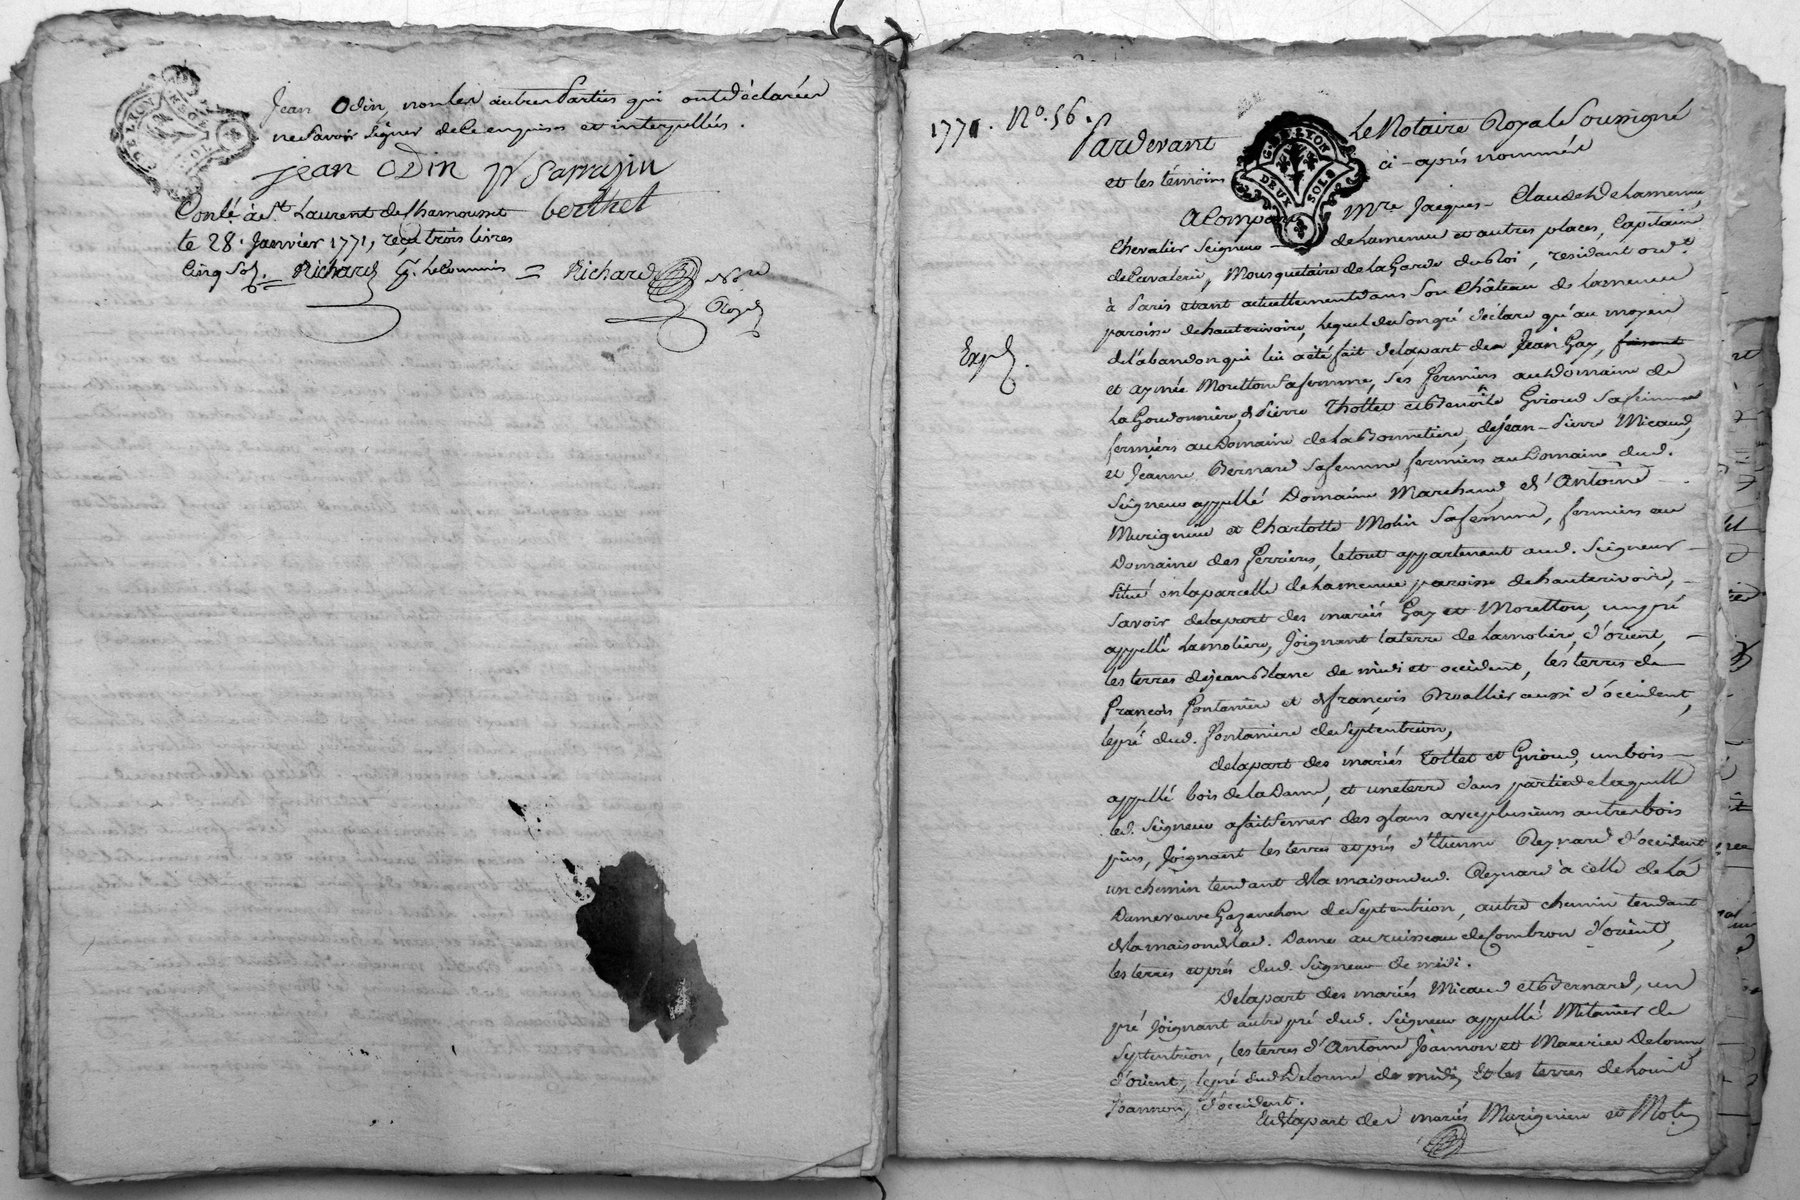 Jean Odin, non les autres Parties qui ont déclarées
ne Savoir Signer de ce enquises et interpellées.
jean ODIN Sarrasin
Conlé. à St. Laurent de Chamousset berthet
le 28. Janvier 1771, reçu trois livres
Cinq Sols. Richard pr. le Commis = Richard Nore
Royal
G. DE LYON
DEUX SOLS
1771. No. 56.
Pardevant Le Notaire Royal Soussigné
et les témoins ci-après nommés
G. DE LYON
DEUX SOLS
A Comparu Mre. Jacques-Claude De Lamenue
Chevalier Seigneur de Lamenue et autres places, Capitaine
de Cavalerie, Mousquetaire de la Garde du Roi, résidant ordt.
à Paris étant actuellement dans Son Château de Lamenue
paroisse de hauterivoire, lequel de Son gré déclare qu'au moyen
Expd.
de l'abandon qui lui a été fait de la part de Jean Gay,
et aymée Moretton Sa femme, Ses fermiers au Domaine de
La Goudonnière, de Pierre Thollet et Benoîte Giroud Sa femme
fermiers au Domaine de La Bonnetière, de jean-Pierre Micaud,
et Jeanne Bernard Sa femme fermiers au Domaine dud.
Seigneur appellé Domaine Marchand et d'Antoine
Murigneux et Charlotte Molin Sa femme, fermiers au
Domaine des ferrières, le tout appartenant aud. Seigneur
Situé en la parcelle de Lamenue paroisse de hauterivoire,
Savoir de la part des mariés Gay et Moretton, un pré
appellé Lamolière, Joignant la terre de Lamolière, d'orient,
les terres de jean Blanc de midi et occident, les terres de
François fontanière et de françois Noallier aussi d'occident,
le pré dud. fontanière de Septentrion,
de la part des mariés Tollet et Giroud, un bois
appellé bois de la Dame, et une terre dans partie de laquelle
led. Seigneur a fait Semer des glans avec plusieurs autres bois
pins, Joignant les terres et prés d'Etienne Reynard d'occident
un chemin tendant de la maison dud. Reynard à celle de la
Dame veuve Gazanchon de Septentrion, autre chemin tendant
de la maison de lad. Dame au ruisseau de Combron d'orient,
les terres et prés dud. Seigneur de midi.
De la part des mariés Micaud et Bernard, un
pré Joignant autre pré dud. Seigneur appellé Mitanier de
Septentrion, les terres d'Antoine Joannon et Delorme
d'orient, le pré dud Delorme de midi, et les terres de
Joannon, d'occident.
Et de la part des mariés Murigneux et Molin